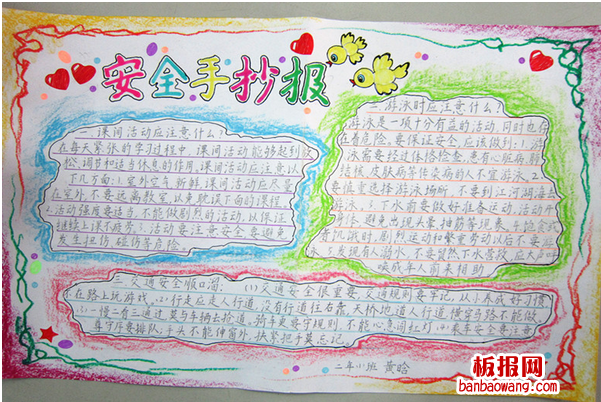 安全手抄报
一、课间活动应注意什么？
在每天紧张的学习过程中，课间活动能够起到放
松、调节和适当休息的作用。课间活动应注意以
下几方面：1.室外空气新鲜，课间活动应尽量
在室外，不要远离教室，以免耽误下面的课程。
活动强度要适当，不能做剧烈的活动，以保证
继续上课不疲劳。活动要注意安全，要避免
发生扭伤、碰伤等危险。
二、游泳时应注意什么？
游泳是一项十分有益的活动，同时也存
在着危险。要保证安全，应该做到：1.游
泳需要经过体格检查。患有心脏病、
皮肤病等传染病的人不宜游泳。2.
要慎重选择游泳场所，不要到江河湖海
游泳。3.下水前要做好准备活动，活动
身体，避免出现头晕、抽筋等现象。
剧烈运动和繁重劳动以后不要
发现有人溺水，不要贸然下水营救，应大声
唤成年人前来相助
三、交通安全顺口溜：（1）交通安全很重要，交通规则要牢记，从小养成好习惯，
不在路上玩游戏。（2）行走应走人行道，没有行道往右靠，天桥地道人行道，横穿马路不能做
一慢二看三通过，莫与车辆去抢道。骑车更要守规则，不能心急闯红灯。（4）乘车安全要注意，
遵守秩序要排队，手头不能伸窗外，扶紧把手莫忘记。
二年小班 黄晗
板报网
banbaowang.com